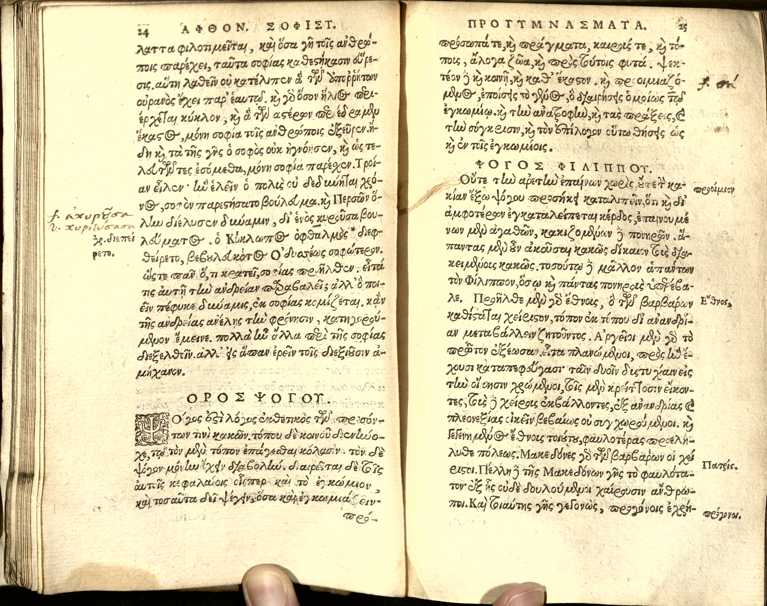 24 ΑΦΘΟΝ. ΣΟΦΙΣΤ.
λαττα φιλοτιμεῖται, καὶ ὅσα γῆ τοῖς ἀνθρώ-
ποις παρέχει, ταῦτα σοφίας καθεστήκασιν εὕρε-
σις. αὕτη λαθεῖν οὐ κατέλιπεν ἃ τῶν ὑπερόντων
οὐρανὸς ἔχει παρ' ἑαυτῷ. καὶ γὰρ ὅσον ἥλιος περι-
έρχεται κύκλον, καὶ ἃ τῶν ἀστέρων περιέδραμεν
ἕκαστος, μόνη σοφία τοῖς ἀνθρώποις ἐξεῦρεν. ἤ-
δη καὶ τὰ τῆς γῆς ὁ σοφὸς οὐκ ἠγνόησεν, καὶ ὡς τε-
λευτῶντες ἐσόμεθα, μόνη σοφία παρέχει. Τροί-
αν εἷλεν ἣν ἑλεῖν ὁ πολὺς οὐ δεδύνηται χρό-
νος, σοφὸν παρεστήσατο βούλευμα. καὶ Περσῶν
ὅλην διέλυσεν δύναμιν, δι' ἑνὸς κυροῦσα βου-
λεύματος. ὁ Κύκλωπος ὀφθαλμὸς διεφ-
θείρετο, βεβουλευκότος Ὀδυσσέως σοφώτερον.
ὥστε πᾶν ὅ, τι κρατεῖ, σοφίας προῆλθεν. εἶτά
τις αὐτῇ τὴν ἀνδρείαν παραβαλεῖ; ἀλλ' ὃ ποι-
εῖν πέφυκε δύναμις, ἐκ σοφίας κομίζεται. κἂν
τῆς ἀνδρείας ἀνέλῃς τὴν φρόνησιν, κατηγορού-
μενον ἔμεινε. πολλὰ ἦν ἄλλα περὶ τῆς σοφίας
διεξελθεῖν. ἀλλ' ἧς ἅπαν ἐρεῖν τοῖς διεξιοῦσιν ἀ-
μήχανον.
ΟΡΟΣ ΨΟΓΟΥ.
Ψόγος ἐστὶ λόγος ἐκθετικὸς τῶν προσόν-
των τινὶ κακῶν. τόπου δὲ κοινοῦ διενήνο-
χε, τῷ τὸν μὲν τόπον ἐπάγεσθαι κόλασιν. τὸν δὲ
ψόγον μόνην ἔχειν διαβολήν. διαιρεῖται δὲ τοῖς
αὐτοῖς κεφαλαίοις οἷσπερ καὶ τὸ ἐγκώμιον.
καὶ τοσαῦτα δεῖ ψέγειν, ὅσα καὶ ἐγκωμιάζειν.
πρό-
ἐς. διεπεί
ρετο.
ΠΡΟΓΥΜΝΑΣΜΑΤΑ. 25
πρόσωπά τε, καὶ πράγματα, καιρούς τε, καὶ τό-
πους, ἄλογα ζῶα, καὶ πρὸς τούτοις φυτά. ψεκ-
τέον καὶ κοινῇ, καὶ καθ' ἕκαστον. καὶ προοιμιαζό-
μενος, ἐποίσῃς τὸ γένος, ὃ διαιρήσῃς ὁμοίως τῷ
ἐγκωμίῳ. καὶ τὴν ἀναστροφήν, καὶ τὰς πράξεις, καὶ
τὴν σύγκρισιν, καὶ τὸν ἐπίλογον οὕτω θήσῃς ὡς
καὶ ἐν τοῖς ἐγκωμίοις.
ΨΟΓΟΣ ΦΙΛΙΠΠΟΥ.
Οὔτε τὴν ἀρετὴν ἐπαίνων χωρὶς, οὔτε τὴν κα-
κίαν ἔξω ψόγου προσῆκε καταλιπεῖν, ὅτι καὶ δι'
ἀμφοτέρων ἐγκαταλείπεται κέρδος, ἐπαινουμέ
νων μὲν ἀγαθῶν, κακιζομένων ἢ πονηρῶν. ἅ-
παντας μὲν οὖν ἀκοῦσαι κακῶς δίκαιον τοὺς δια-
κειμένους κακῶς. τοσούτῳ ἢ μᾶλλον ἁπάντων
τὸν Φίλιππον, ὅσῳ καὶ πάντας πονηροὺς ὑπερέβα-
λε. Προῆλθε μὲν γὰρ ἔθνους, ὃ τῶν βαρβάρων
καθέστηκε χείριστον, τόπον ἐκ τόπου δι' ἀνανδρί-
αν μεταβάλλειν ζητοῦντος. Ἀργεῖοι μὲν γὰρ τὸ
πρῶτον ἐξέωσαν. εἶτα πλανώμενοι, πρὸς ἣν ἔ-
χουσι καταπεφεύγασι. ταῖν δυοῖν δυστυχίαιν εἰς
τὴν οἴκησιν χρώμενοι, τοῖς μὲν κρείττοσιν εἴκον-
τες, τοὺς ἢ χείρους ἐκβάλλοντες, ἐξ ἀνανδρίας καὶ
πλεονεξίας οἰκεῖν βεβαίως οὐ συγχωρούμενοι. καὶ
γεγενημένος ἔθνους τοιοῦτε, φαυλοτέρας προελή-
λυθε πόλεως. Μακεδόνες γὰρ τῶν βαρβάρων οἱ χεί
ριστοι. Πέλλη ἢ τῆς Μακεδόνων γῆς τὸ φαυλότα-
τον ἐξ ἧς οὐδὲ δουλούμενοι χαίρουσιν ἄνθρω-
ποι. Καὶ τοιαύτης γῆς γεγονὼς, προγόνοις ἐχρή-
προοίμιον
Ἔθνος.
Πατρίς.
πρόγονοι.